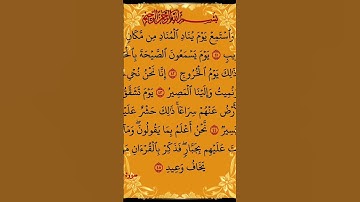 بسم الله الرحمن الرحيم
وَٱسْتَمِعْ يَوْمَ يُنَادِ ٱلْمُنَادِ مِن مَّكَانٍ
يَوْمَ يَسْمَعُونَ ٱلصَّيْحَةَ
ذَٰلِكَ يَوْمُ ٱلْخُرُوجِ ٤٢ إِنَّا نَحْنُ نُحْيِ
وَنُمِيتُ وَإِلَيْنَا ٱلْمَصِيرُ ٤٣ يَوْمَ تَشَقَّقُ
عَنْهُمْ سِرَاعًا ۚ ذَٰلِكَ حَشْرٌ
٤٤ نَّحْنُ أَعْلَمُ بِمَا يَقُولُونَ ۖ وَمَآ
عَلَيْهِم بِجَبَّارٍ ۖ فَذَكِّرْ بِٱلْقُرْءَانِ
يَخَافُ وَعِيدِ ٤٥